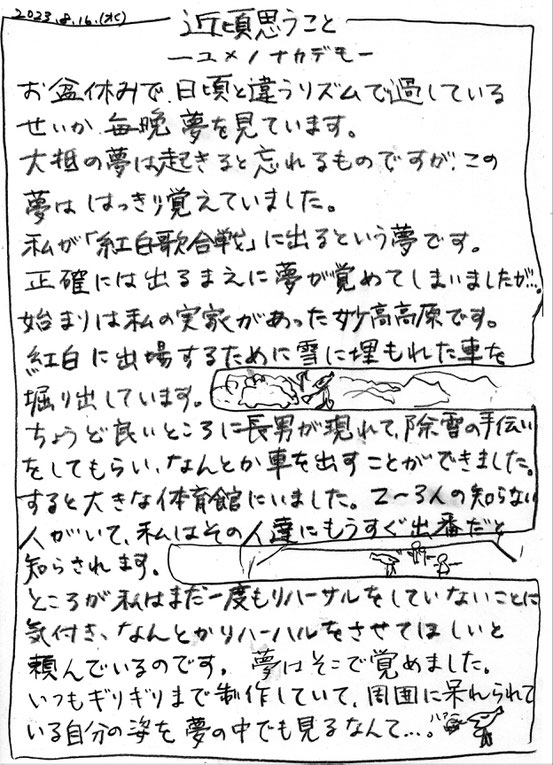 2023.8.16.(水)
近頃思うこと
ーユメノナカデモー
お盆休みで、日頃と違うリズムで過している
せいか、毎晩夢を見ています。
大抵の夢は起きると忘れるものですが、この
夢ははっきり覚えていました。
私が「紅白歌合戦」に出るという夢です。
正確には出るまえに夢が覚めてしまいましたが…。
始まりは私の実家があった妙高高原です。
紅白に出場するために雪に埋もれた車を
掘り出しています。
ちょうど良いところに長男が現れて、除雪の手伝い
をしてもらい、なんとか車を出すことができました。
すると大きな体育館にいました。2〜3人の知らない
人がいて、私はその人達にもうすぐ出番だと
知らされます。
ところが私はまだ一度もリハーサルをしていないことに
気付き、なんとかリハーハルをさせてほしいと
頼んでいるのです。夢はそこで覚めました。
いつもギリギリまで制作していて、周囲に呆れられて
いる自分の姿を夢の中でも見るなんて…。